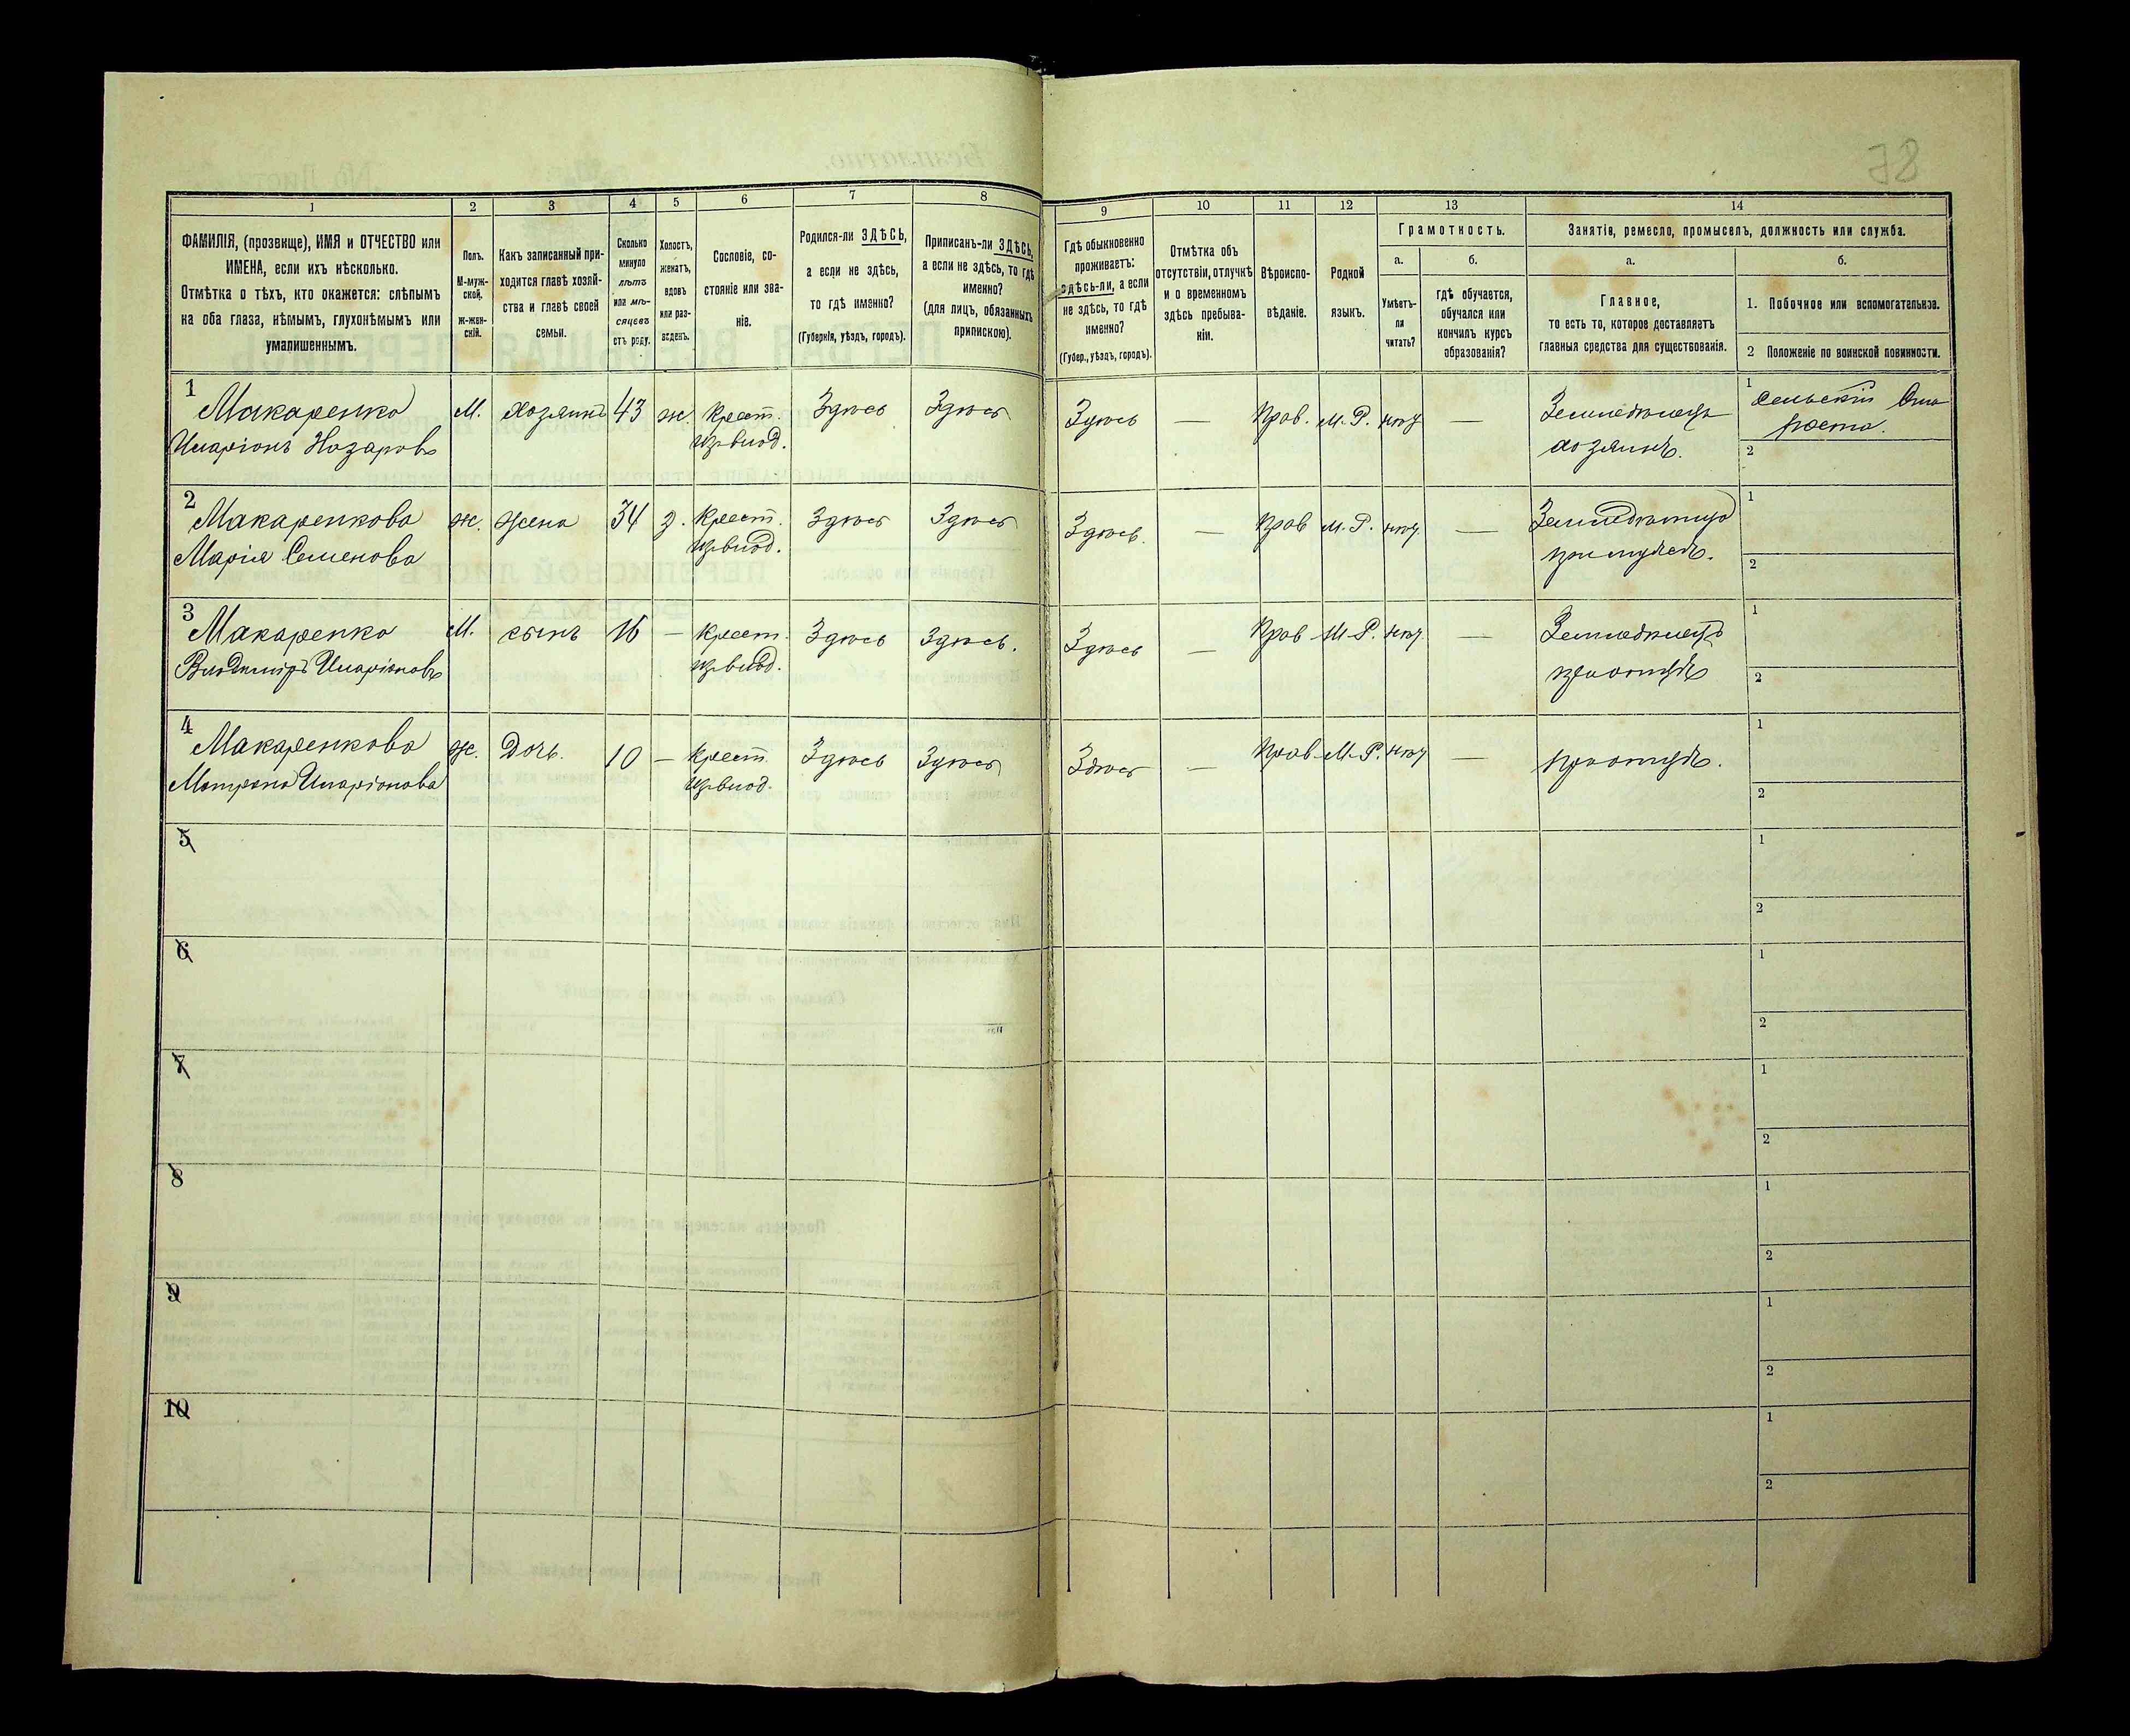 78
1 2 3 4 5 6 7 8 9 10 11 12 13 14
ФАМИЛІЯ, (прозвище), ИМЯ и ОТЧЕСТВО или
ИМЕНА, если ихъ нѣсколько.
Отмѣтка о тѣхъ, кто окажется: слѣпымъ
на оба глаза, нѣмымъ, глухонѣмымъ или
умалишеннымъ.
Полъ.
М-муж-
ской.
ж-жен-
скій.
Какъ записанный при-
ходится главѣ хозяй-
ства и главѣ своей
семьи.
Сколько
минуло
лѣтъ
или мѣ-
сяцевъ
отъ роду.
Холостъ,
женатъ,
вдовъ
или раз-
веденъ.
Сословіе, со-
стояніе или зва-
ніе.
Родился-ли ЗДѢСЬ,
а если не здѣсь,
то гдѣ именно?
(Губернія, уѣздъ, городъ).
Приписанъ-ли ЗДѢСЬ,
а если не здѣсь, то гдѣ
именно?
(для лицъ, обязанныхъ
припискою).
Гдѣ обыкновенно
проживаетъ:
здѣсь-ли, а если
не здѣсь, то гдѣ
именно?
(Губер., уѣздъ, городъ).
Отмѣтка объ
отсутствіи, отлучкѣ
и о временномъ
здѣсь пребыва-
ніи.
Вѣроиспо-
вѣданіе.
Родной
языкъ.
Грамотность.
а.
Умѣетъ-
ли
читать?
б.
гдѣ обучается,
обучался или
кончилъ курсъ
образованія?
Занятія, ремесло, промыселъ, должность или служба.
а.
Главное,
то есть то, которое доставляетъ
главныя средства для существованія.
б.
1. Побочное или вспомогательное.
2 Положеніе по воинской повинности.
1
Макаренко М. хозяинъ 43 ж. Крест. Здѣсь Здѣсь Здѣсь — Прав. М.-Р. нѣтъ — Земледѣлецъ 1 Сельскій Ста
Иларіонъ Назаровъ из влад. хозяинъ. роста.
2
2
Макаренкова ж. жена 34 з. Крест. Здѣсь Здѣсь Здѣсь. — Прав М.-Р. нѣтъ — Земледѣлица 1
Марія Семенова из влад. при мужѣ. 2
3
Макаренко М. сынъ 16 — Крест. Здѣсь Здѣсь. Здѣсь — Прав М.-Р. нѣтъ — Земледѣлецъ 1
Владиміръ Иларіоновъ из влад. при отцѣ 2
4
Макаренкова ж. Дочь. 10 — Крест. Здѣсь Здѣсь Здѣсь — Прав М.-Р. нѣтъ — при отцѣ. 1
Матрона Иларіонова из влад. 2
5 1
2
6 1
2
7 1
2
8 1
2
9 1
2
10 1
2